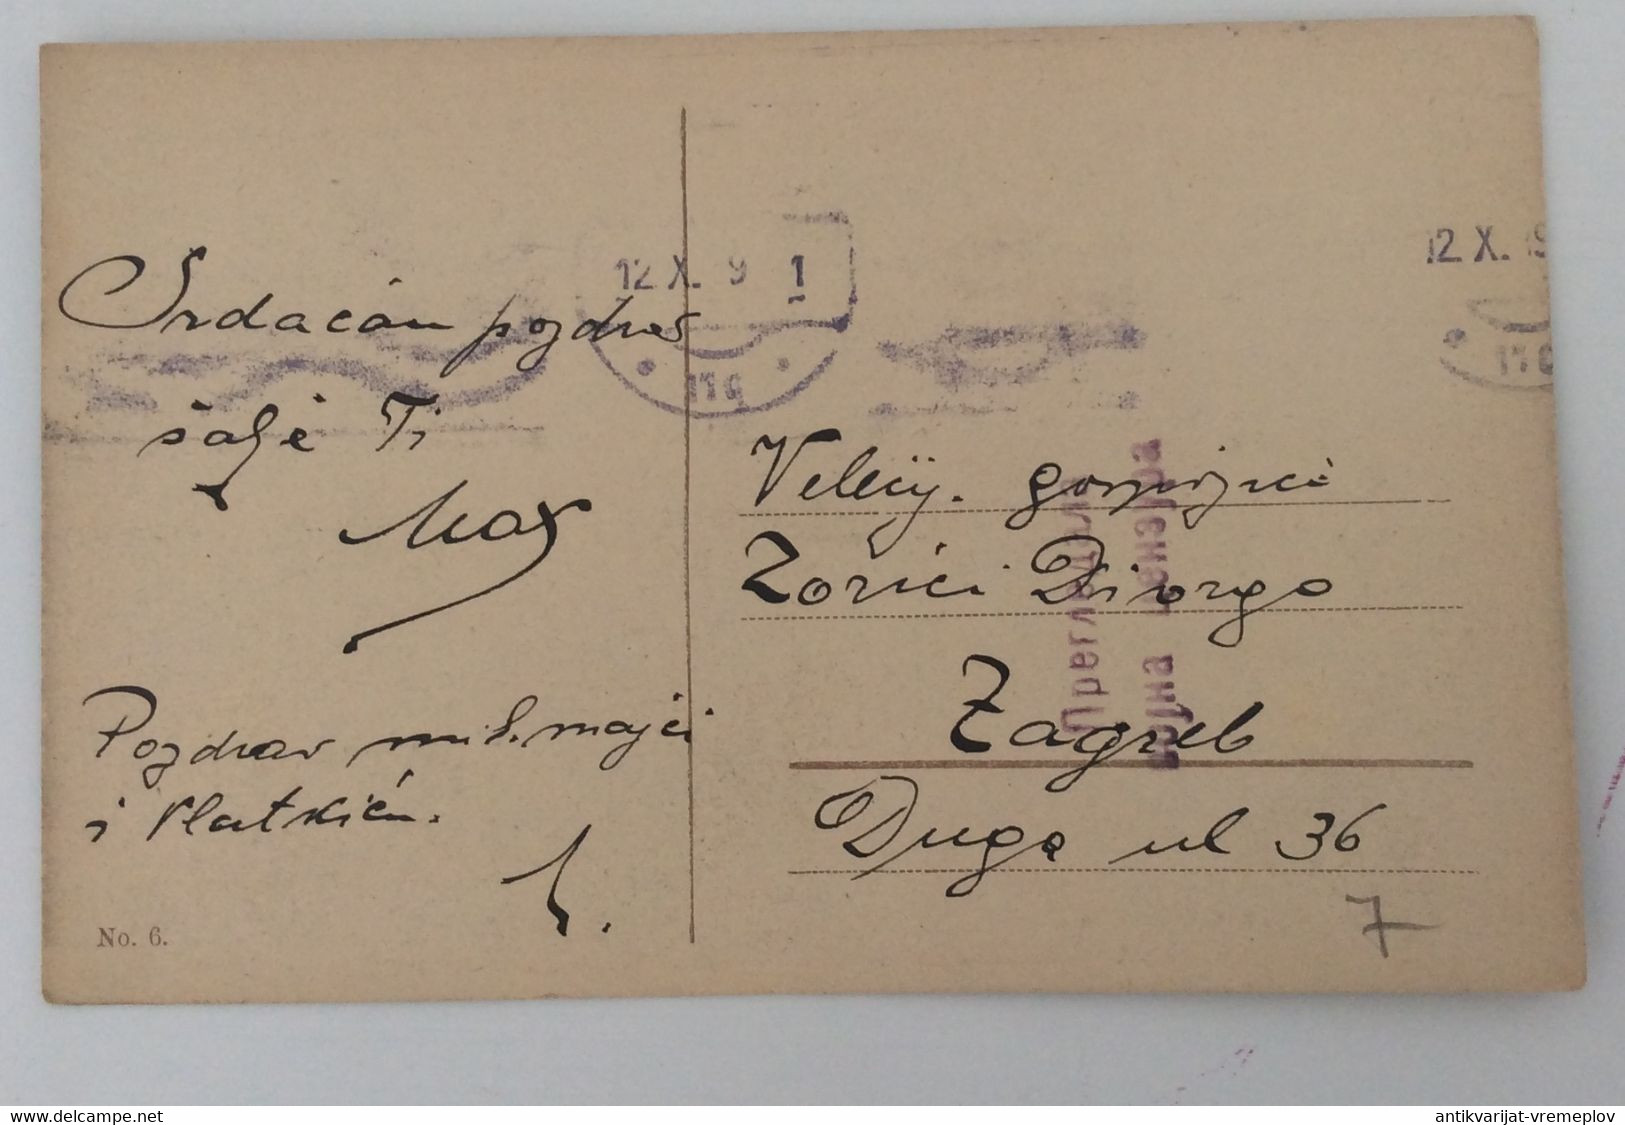 Srdačan pozdrav
šalje Ti
Max
Pozdrav mil. majci
i Vlatkici.
No. 6.
12. X. 9 1
12. X. 19
Velecij. gospojici
Zorici Diorgo
Zagreb
Duga ul 36
7
Прегледала
војна цензура
delcampe.net
antikvarijat-vremeplov